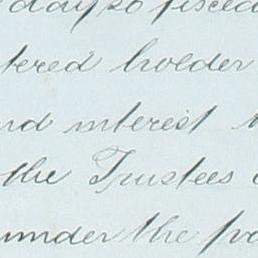 days so fixed
tered holder
nd interest
the Trustees
under the po